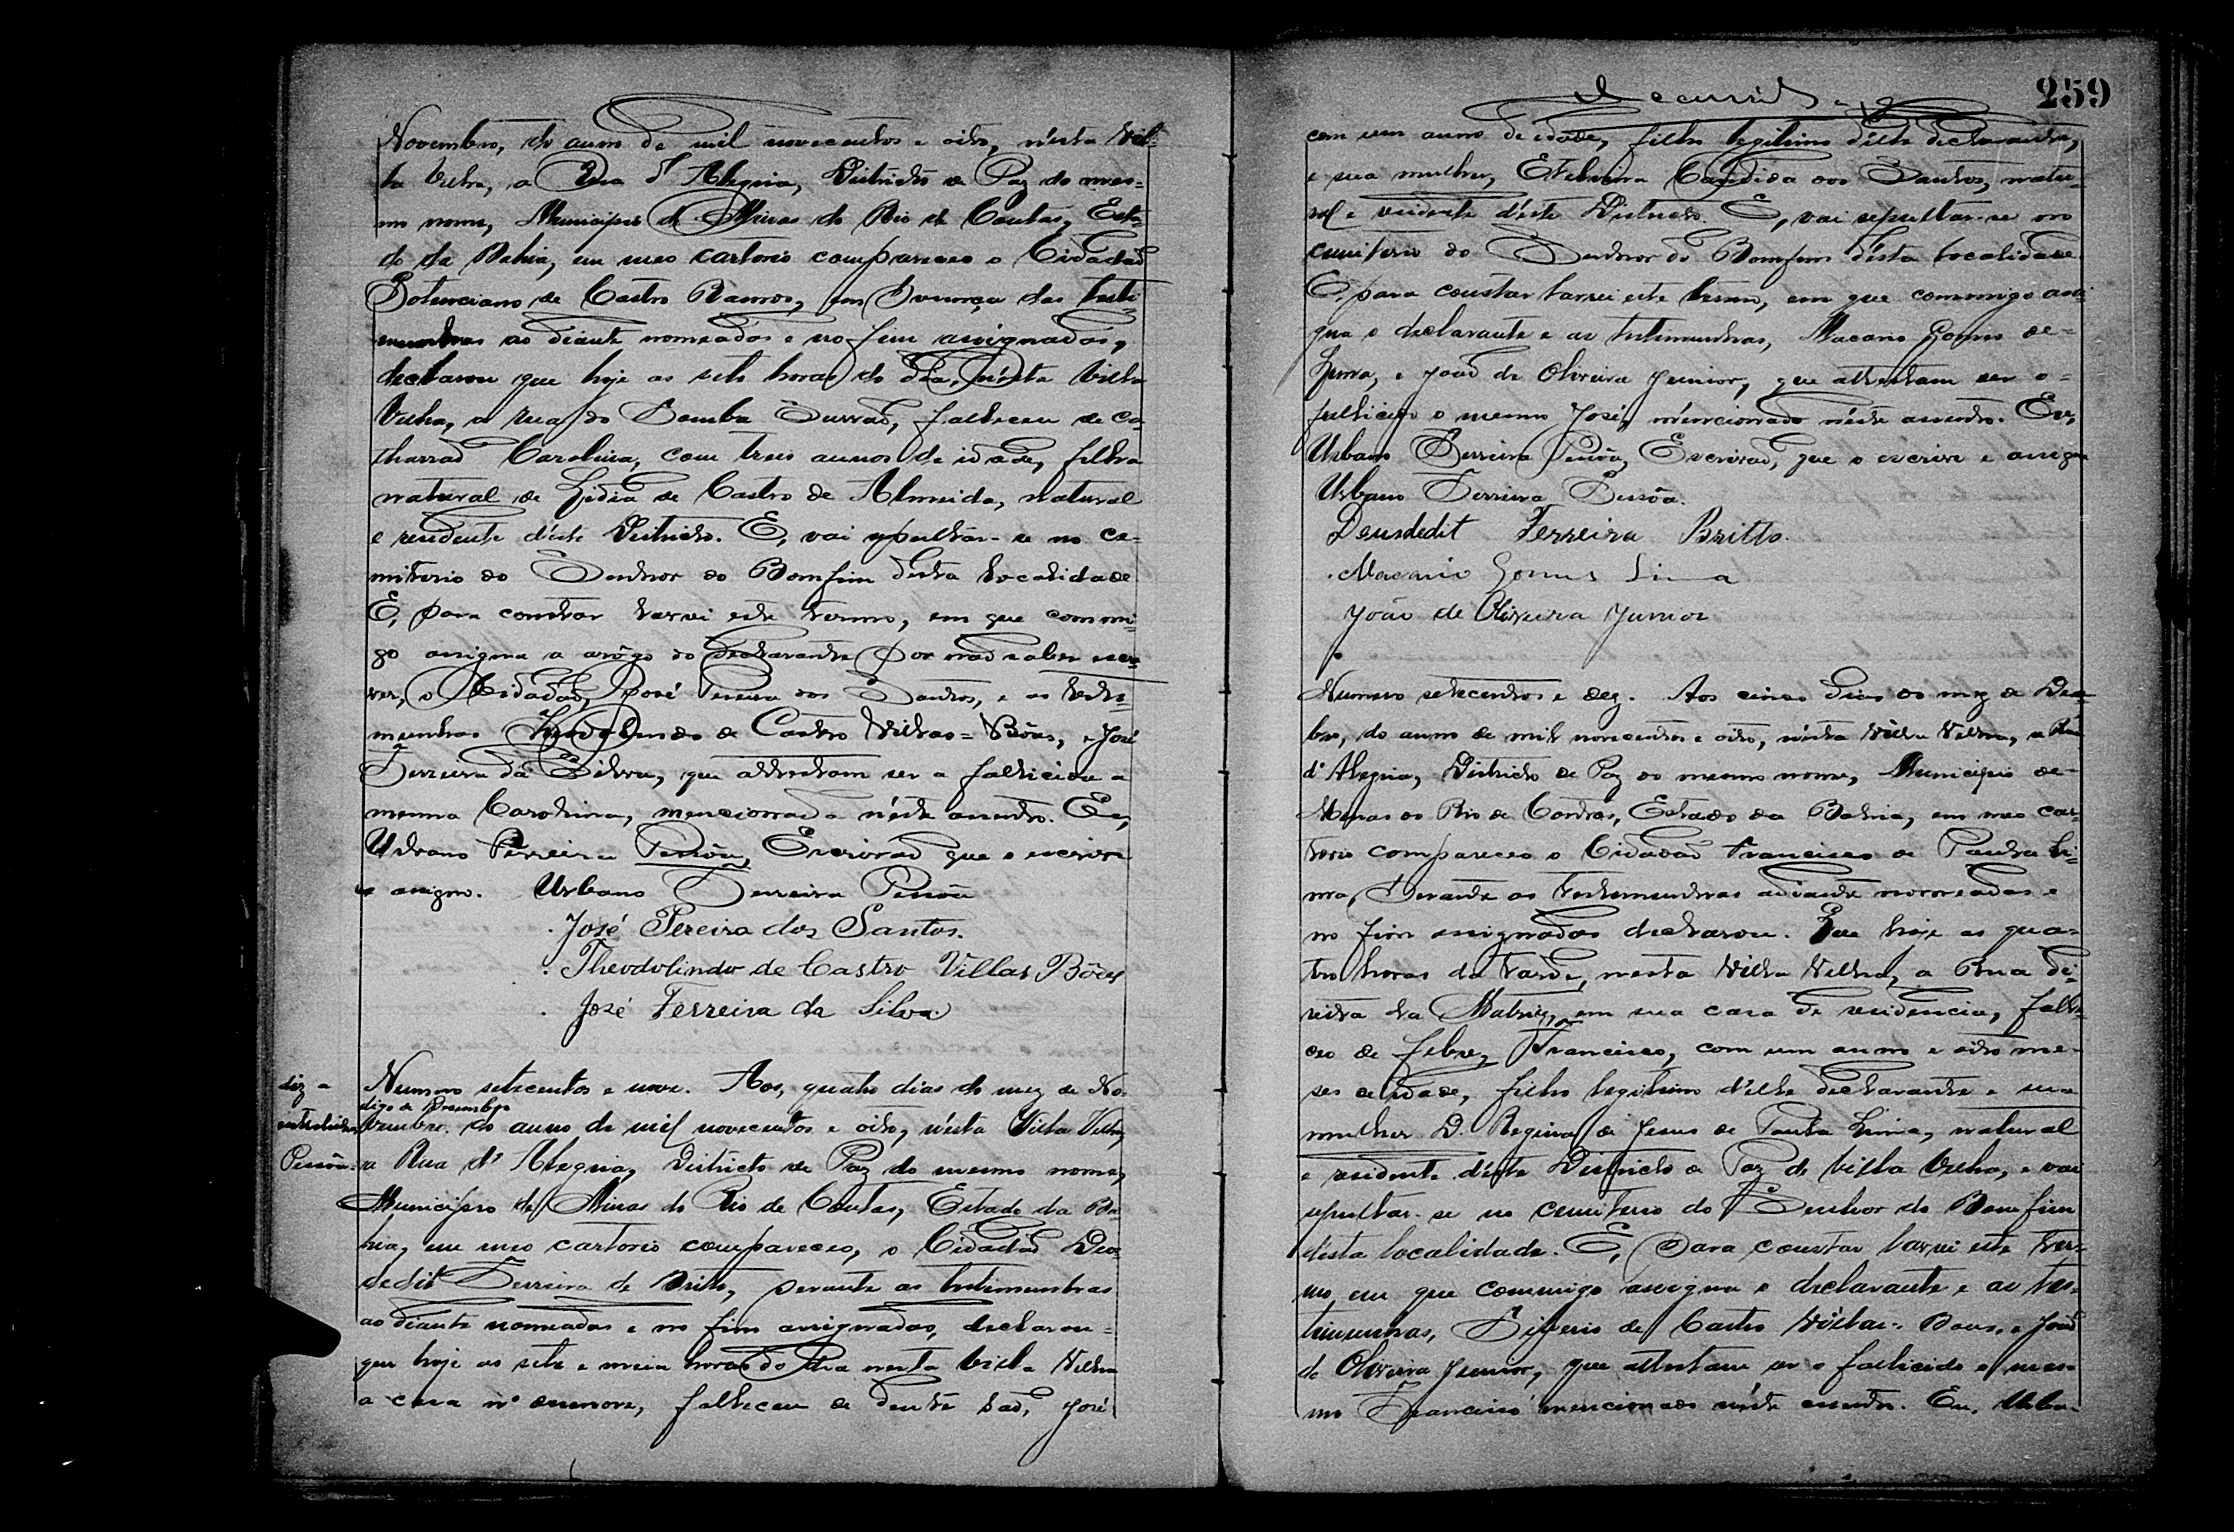 Novembro, do anno de mil novecentos e oito, n'esta Vil-
la Velha, a Rua d'Alegria, Districto de Paz do mes-
mo nome, Municipio de Minas do Rio de Contas, Esta-
do da Bahia, em meo cartorio compareceo o Cidadaõ
Potenciano de Castro Ramos, em prezença das teste-
munhas ao diante nomeadas e no fim assignadas,
declarou que hoje as sete horas do dia, n'esta Villa
Velha, a rua do falleceu de ca-
tharraõ Carolina, com tres annos de idade, filha
natural de Lidia de Castro de Almeida, natural
e residente d'este Districto. E, vai sepultar-se no ce-
miterio do Senhor do Bomfim desta localidade
E, para constar lavrei este termo, em que commi-
go assigna a arôgo do declarante por naõ saber escre-
ver, o Cidadaõ José Pereira dos Santos, e as teste-
munhas Theodolindo de Castro Villas=Bôas, e José
Ferreira da Silva, que attestam ser a fallicida a
mesma Carolina, mencionada n'éste assento. Eu,
Urbano Ferreira Pessôa, Escrivaõ que o escrevi
e assigno. Urbano Ferreira Pessôa
José Pereira dos Santos.
Theodolindo de Castro Villas Bôas
José Ferreira da Silva.
diz a
entrelinha
Pessôa.
Numero setecentos e nove. Aos, quatro dias do mez de No-
digo de Dezembro
vembro. do anno de mil novecentos e oito, n'ésta Villa Velha,
a Rua d'Alegria, Districto de Paz do mesmo nome,
Municipio de Minas do Rio de Contas, Estado da Ba-
hia, em meo cartorio compareceo, o Cidadaõ Deos-
dedit Ferreira de Britto, perante as testimunhas
ao diante nomeadas e no fim assignadas, declarou=
que hoje as sete e meia horas do dia nesta Villa Velha
a casa nº falleceu de José
259
com um anno de idade, filho legitimo d'élle declarante,
e sua mulher, Etelvina Candida dos Santos, natu-
ral e residente d'éste Districto. E, vai sepultar-se no
cemiterio do Senhor do Bomfim d'ésta localidade
E, para constar lavrei este termo, em que commigo assi-
gna o declarante e as testimunhas, Macario Gomes de=
Lima, e Joaõ de Oliveira Junior, que attestam ser o=
fallicido o mesmo José, mencionado néste assento. Eu,
Urbano Ferreira Pessôa, Escrivaõ, que o escrevi e assigno
Urbano Ferreira Pessôa.
Deusdedit Ferreira Britto.
Macario Gomes Lima
João de Oliveira Junior
Numero setecentos e dez. Aos cinco dias do mez de Dezem-
bro, do anno de mil novecentos e oito, nésta Villa Velha, a Rua
d'Alegria, Districto de Paz do mesmo nome, Municipio de-
Minas do Rio de Contas, Estado da Bahia, em meo car-
torio compareceo o Cidadaõ Francisco de Paula Li-
ma, Perante as testemunhas adiante nomeadas e
no fim assignadas declarou. Que hoje as qua-
tro horas da tarde, nesta Villa Velha, a Rua di-
reita da Matriz, em sua casa de residencia, falle-
ceo de febre, Francisco, com um anno e oito me-
ses de idade, filho legitimo d'élle declarante e sua
mulher D. Regina de Jesus de Paula Lima, natural
e residente d'éste Districto de Paz de Villa Velha, e vai
sepultar-se no cemiterio do Senhor do Bomfim
désta localidade. E, Para constar lavrei este ter-
mo, em que commigo assigna o declarante e as tes-
timunhas, Silverio de Castro Villas-Boas, e Joaõ
de Oliveira Junior, que attestam ser o fallicido o mes-
mo Francisco mencionado néste assento. Eu, Urba-